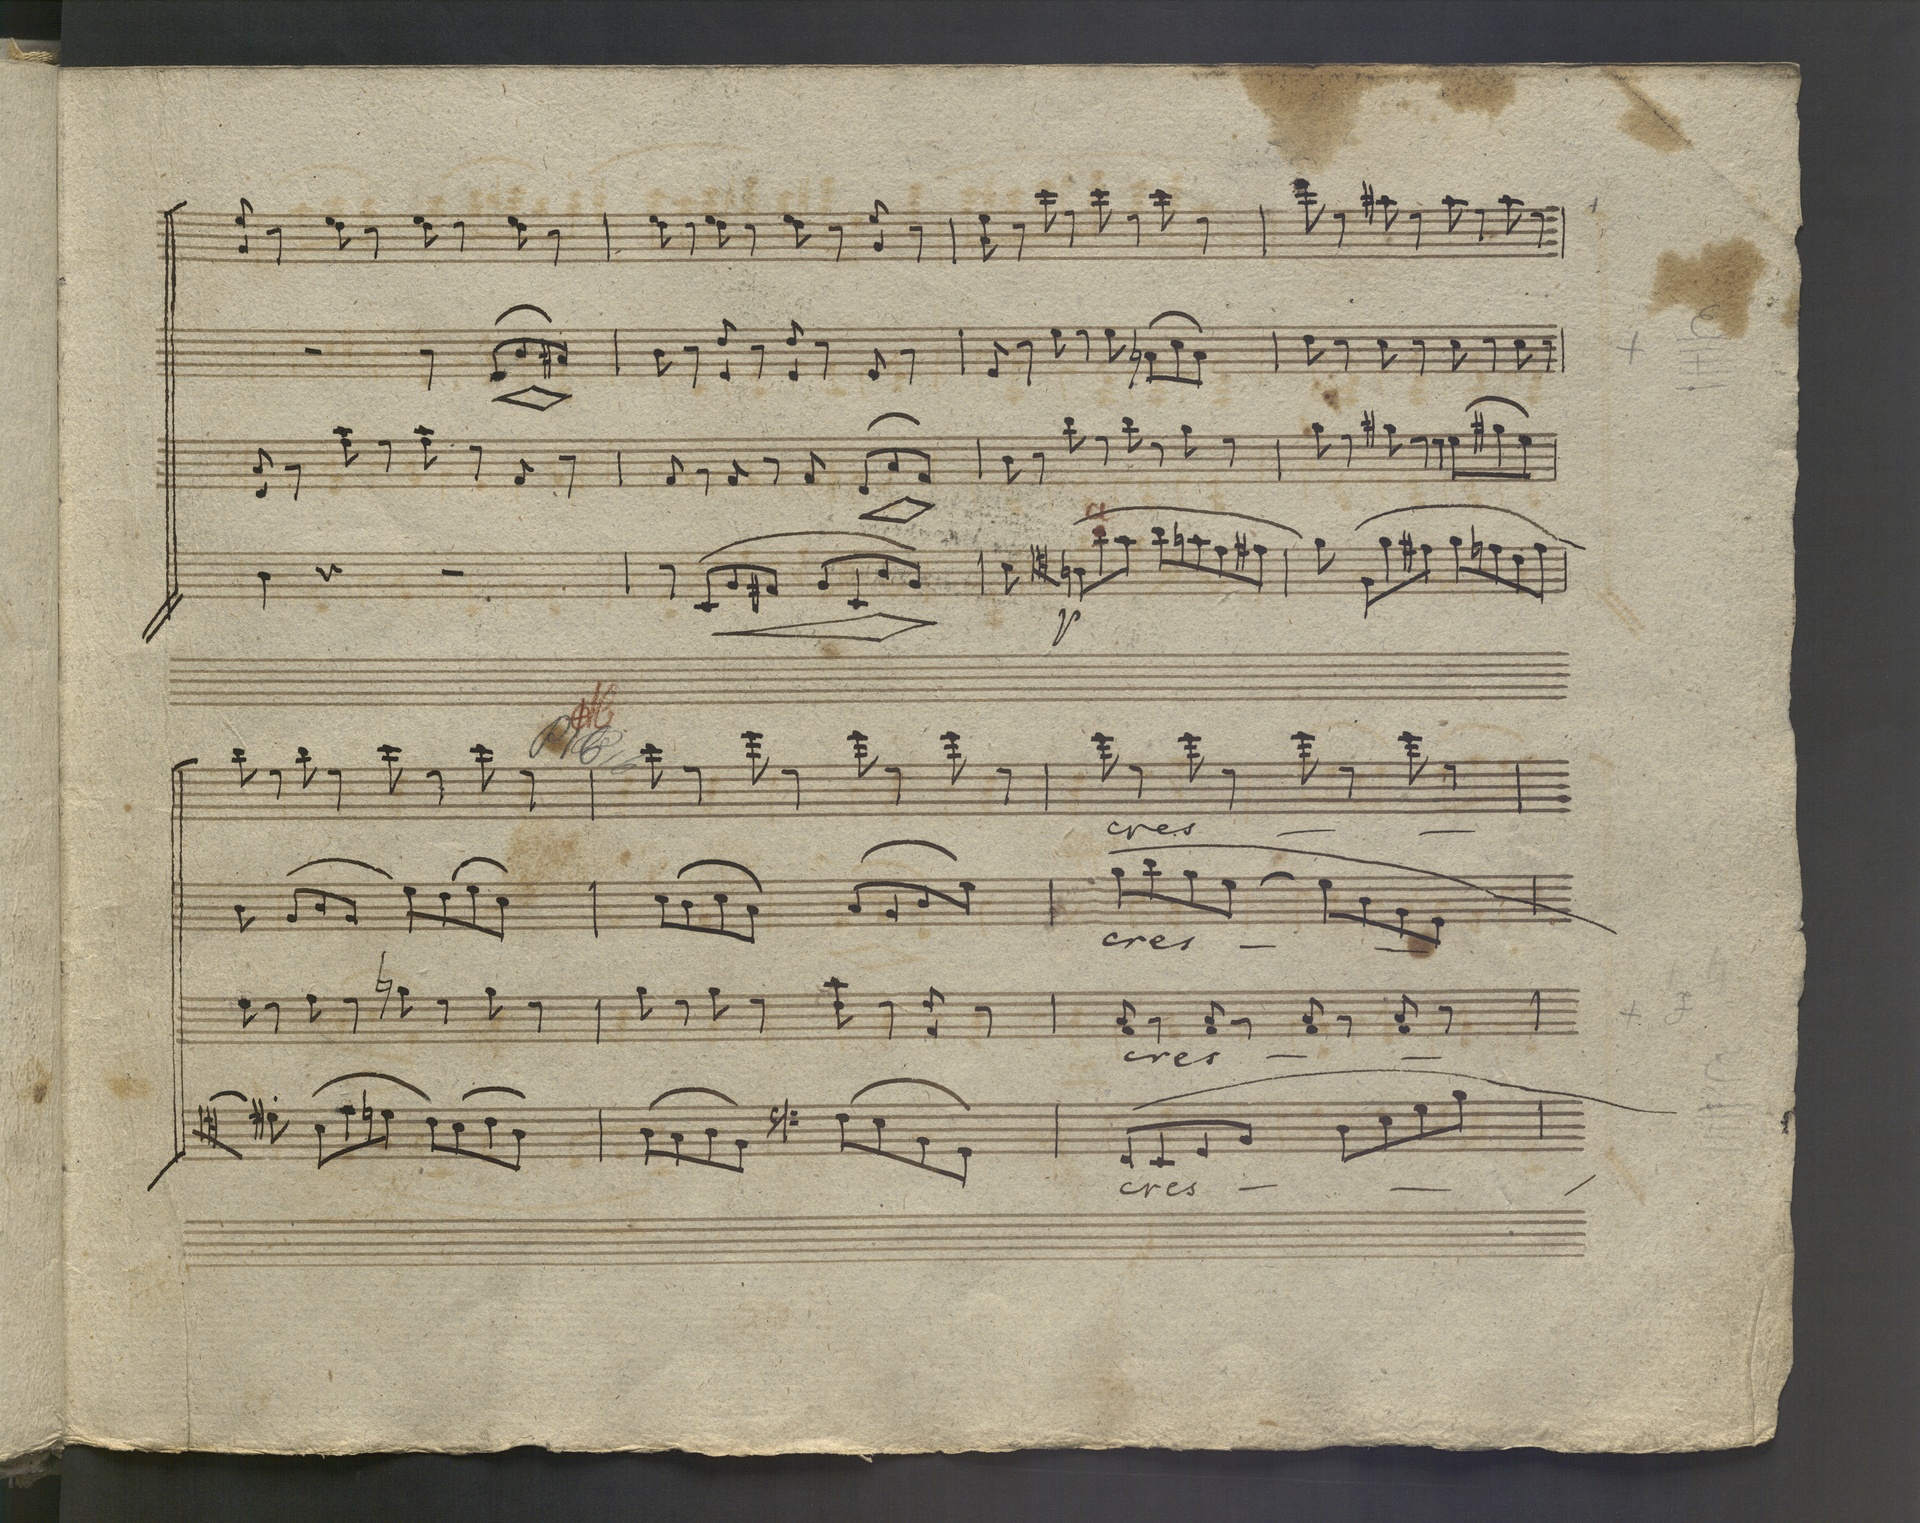 a
p
cres
cres
cres
cres